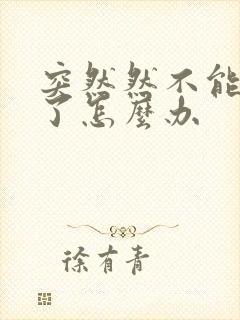 突然然不能
了怎麼办
徐有青